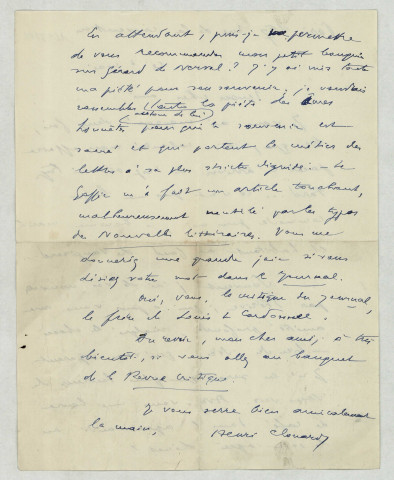 En attendant, puis-je me permettre
de vous recommander mon petit bouquin
sur Gérard de Nerval ? J'y ai mis toute
ma piété pour son souvenir ; je voudrais
rassembler toutes les piétés des âmes
(autour de lui)
honnêtes pour qui le souvenir est
sacré et qui portent le métier des
lettres à sa plus stricte dignité. – Le
Goffic m'a fait un article touchant,
malheureusement mutilé par les typos
des Nouvelles littéraires. Vous me
donneriez une grande joie si vous
disiez votre mot dans le Journal.
Oui, vous, le critique du Journal,
le frère de Louis Le Cardonnel.
Au revoir, mon cher ami, à très
bientôt, si vous allez au banquet
de la Revue critique.
Je vous serre bien amicalement
la main, Henri Clouard